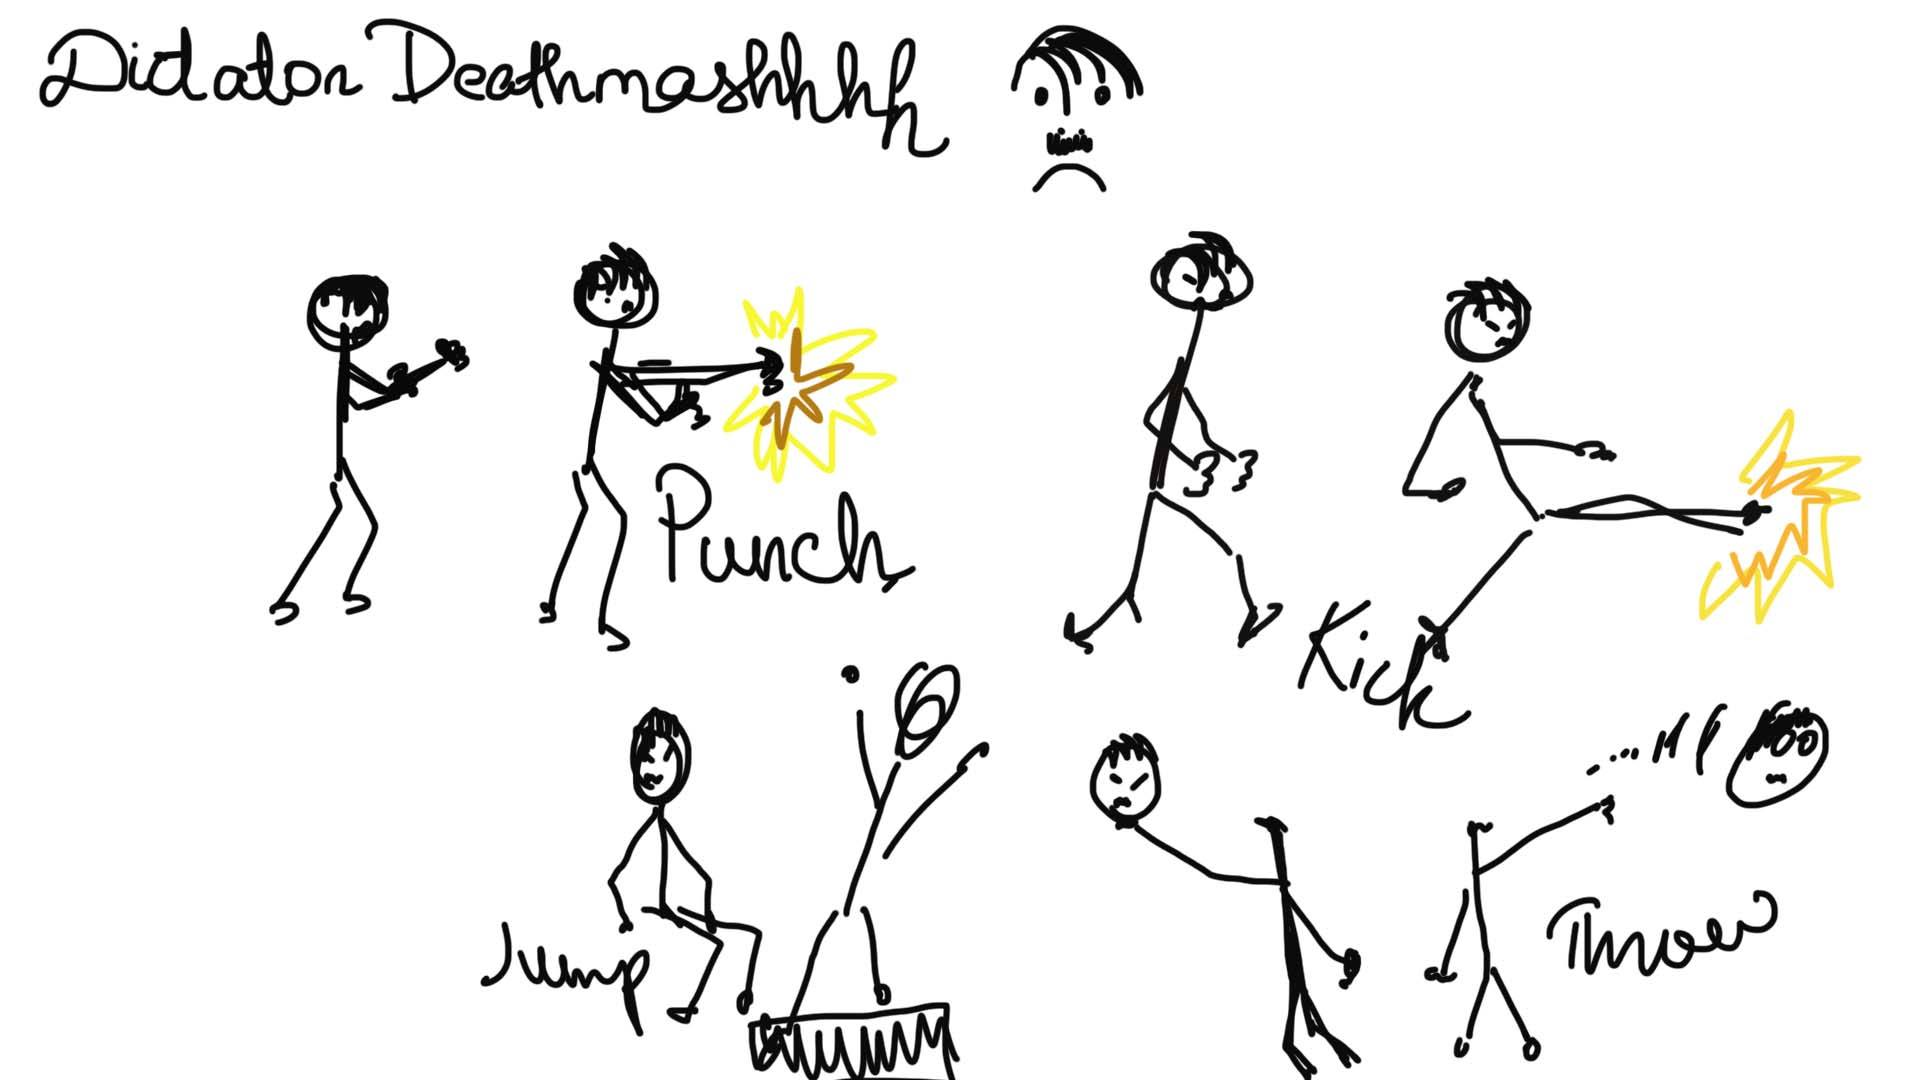 Dictator Deathmashhhh
Punch
Kick
Jump
Throw